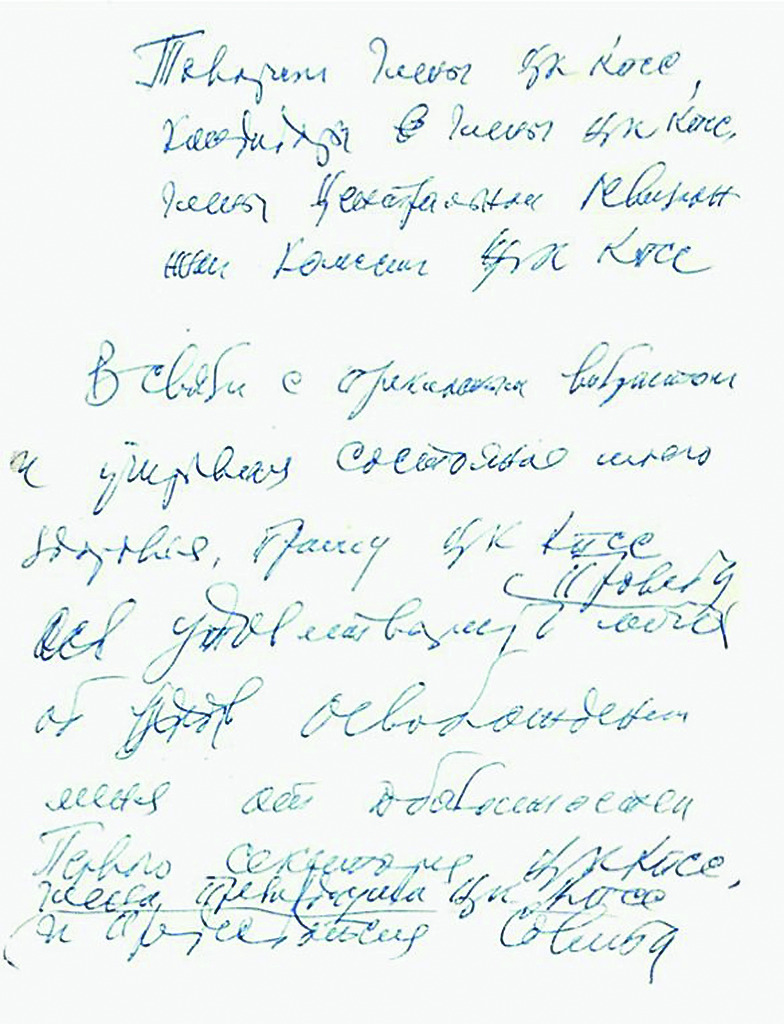 Товарищи члены ЦК КПСС,
кандидаты в члены ЦК КПСС,
члены Центральной Ревизион
ной Комиссии ЦК КПСС
В связи с преклонным возрастом
и учитывая состояние моего
здоровья, прошу ЦК КПСС
просьбу
удовлетворить мою
об освобождении
меня от обязанностей
Первого секретаря ЦК КПСС,
члена Президиума ЦК КПСС
и Председателя Совета